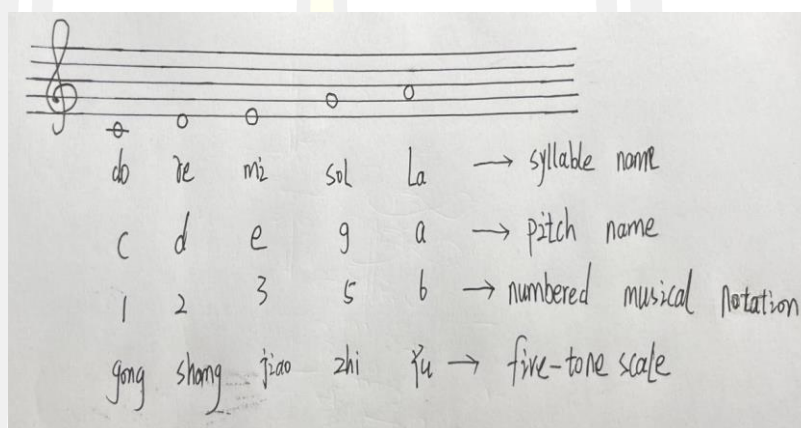 do re mi sol La → syllable name
c d e g a → pitch name
1 2 3 5 6 → numbered musical notation
gong shang jiao zhi yu → five-tone scale